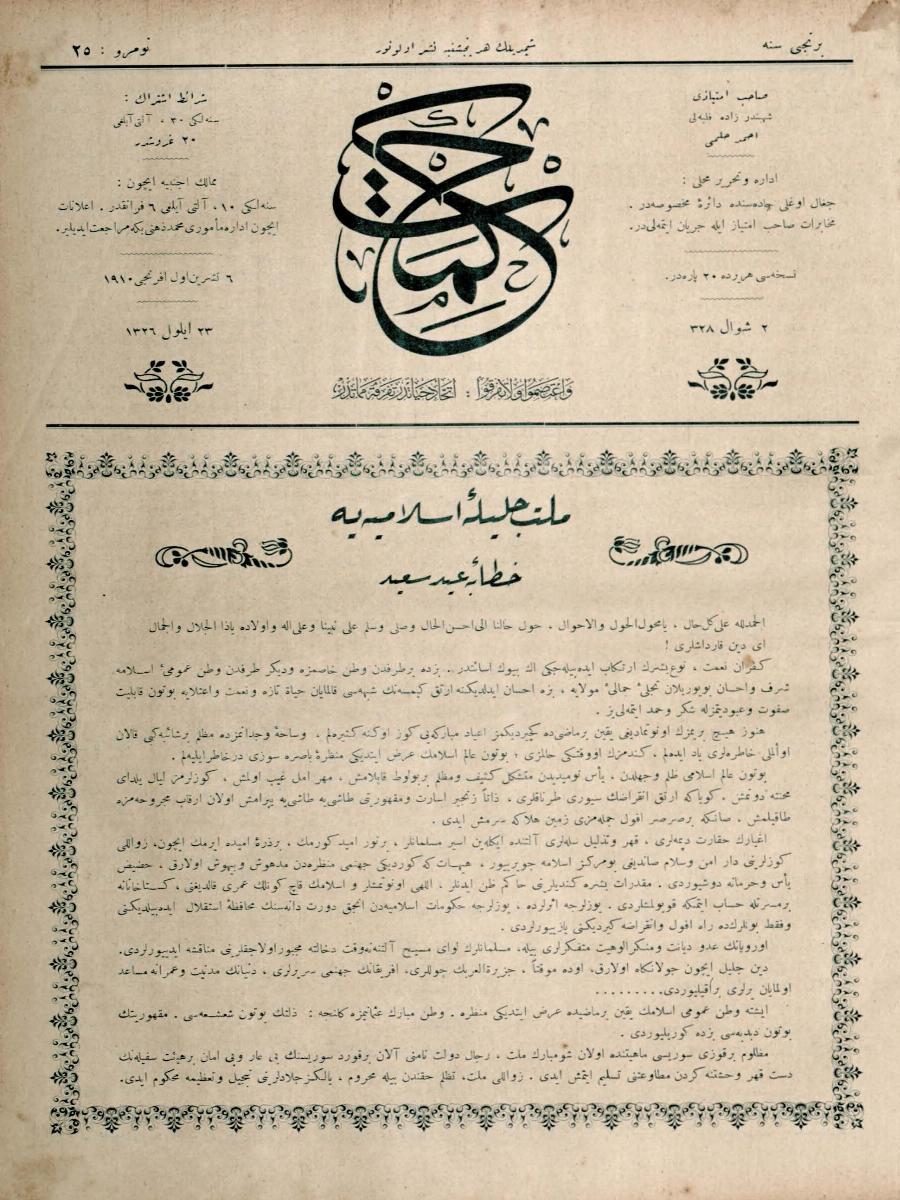 برنجی سنه
شمدیلك هر پنجشنبه نشر اولونور
نومرو : ٢٥
صاحب امتیازی
شهبندر زاده فلبه‌لی
احمد حلمی
اداره و تحریر محلی :
جغال اوغلی جاده‌سنده دائرهٔ مخصوصه‌در .
مخابرات صاحب امتیاز ایله جریان ایتمه‌لی‌در.
نسخه‌سی هر یرده ٢٠ پاره‌در.
٢ شوال ٣٢٨
حکمت
شرائط اشتراك :
سنه‌لکی ٣٠ ، آلتی آیلغی
٢٠ غروشدر
ممالك اجنبیه ایچون :
سنه‌لکی ١٠، آلتی آیلغی ٦ فرانقدر . اعلانات
ایچون اداره مأموری محمد ذهنی بکه مراجعت ایدیلیر.
٦ تشرین اول افرنجی ١٩١٠
٢٣ ایلول ١٣٢٦
واعتصموا ولا تفرقوا : اتحاد حیاتدر تفرقه مماتدر
ملت جلیلهٔ اسلامیه‌یه
خطابهٔ عید سعید
الحمدلله علی كل حال ، یامحول الحول والاحوال ، حول حالنا الی احسن الحال وصلی وسلم علی نبینا وعلی اله واولاده یاذا الجلال والجمال
ای دین قارداشلری !
کفران نعمت ، نوع بشرك ارتکاب ایده‌بیله‌جکی اڭ بیوك اسائتدر . بزده بر طرفدن وطن خاصمزه و دیکر طرفدن وطن عمومیٔ اسلامه
شرف و احسان بویوریلان تجلیٔ جمالیٔ مولایه ، بزه احسان ایلدیکنه ارتق کیمسه‌نك شبهه‌سی قالمایان حیاة تازه و نعمت واعتلایه بوتون قابلیت
صفوت و عبودیتمزله شکر و حمد ایتمه‌لی‌یز .
هنوز هیچ بریمزك اونوتمادیغی یقین بر ماضی‌ده کچیردیکمز اعیاد مبارکه‌یی کوز اوکنه کتیره‌لم ، وساحهٔ وجدانمزده مظلم بر شائبه کبی قالان
او المالی خاطره‌لری یاد ایده‌لم ، کندمزك اووقتکی حالمزی ؛ بوتون عالم اسلامك عرض ایتدیکی منظرهٔ باصره سوزی در خاطر ایلیه‌لم .
بوتون عالم اسلامی ظلم و جهلدن ، یأس نومیدیدن متشکل کثیف و مظلم بر بولوط قابلامش ، مهر امل غیب اولمش ، کوزلرمز لیال یلدای
محنته دونمش . کویاکه ارتق انقراضك سیوری طرناقلری ، ذاتاً زنجیر اسارت و مقهورتی طاشی‌یه طاشی‌یه پیرامش اولان ارقاب مجروحه‌مزه
طاقیلمش ، صانکه بر صرصر افول جمله‌مزی زمین هلاکه سرمش ایدی .
اغیارك حقارت دیمه‌لری ، قهر و تذلیل سله‌لری آلتنده ایکله‌ین اسیر مسلمانلر ، بر نور امید کورمك ، بر ذرهٔ امیده ایرمك ایچون، زواللی
کوزلرینی دار امن و سلام صاندیغی بو مرکز اسلامه چویرییور ، هیهات که کوردیکی جهنمی منظره‌دن مدهوش و بیهوش اولارق ، حضیض
یأس و حرمانه دوشیوردی . مقدرات بشره کندیلرینی حاکم ظن ایدنلر ، اللهی اونوتمشلر و اسلامك قاچ کونلك عمری قالدیغنی ، کستاخانه
بر مسرتله حساب ایتمکه قویولمشلردی . یوزلرجه اثرلرده ، یوزلرجه حکومات اسلامیه‌دن انجق دورت دانه‌سنك محافظهٔ استقلال ایده‌بیلدیکنی
و فقط بونلرك‌ده راه افول و انقراضه کیردیکنی یازییورلردی .
اوروپانك عدو دیانت و منکر الوهیت متفکرلری بیله، مسلمانلرك لوای مسیح آلتنه نه‌وقت دخالته مجبور اولاجقلرینی مناقشه ایدییورلردی.
دین جلیل ایچون جولانکاه اولارق، اوده موقتاً ، جزیرة العربك چوللری، افریقانك جهنمی سریرلری ، دنیانك مدنیت و عمرانه مساعد
اولمایان یرلری براقیلیوردی.........
ایشته وطن عمومی اسلامك یقین بر ماضیده عرض ایتدیکی منظره . وطن مبارك عثمانیمزه کلنجه : ذلتك بوتون شعشعه‌سی . مقهوریتك
بوتون دبدبه‌سی بزده کوریلیوردی .
مظلوم بر قوزی سوریسی ماهیتنده اولان شو مبارك ملت ، رجال دولت نامنی آلان بر قورد سوریسنك بی عار و بی امان بر هیئت سفیله‌نك
دست قهر و حشتنه کردن مطاوعتنی تسلیم ایتمش ایدی . زواللی ملت، تظلم حقندن بیله محروم ، یالکز جلادلرینی تبجیل و تعظیمه محکوم ایدی.